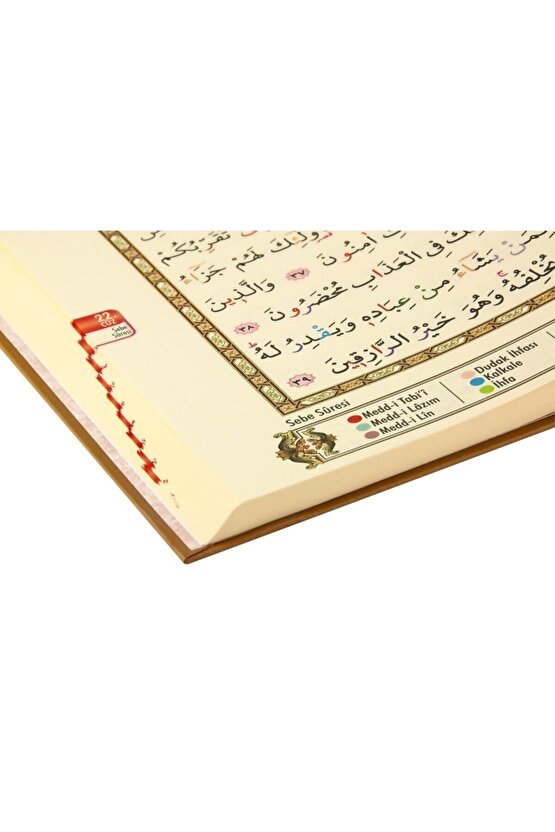 تُقَرِّبُكُمْ
فَاُو۬لٰٓئِكَ لَهُمْ جَزَٓاءُ
اٰمِنُونَ ٣٧ وَالَّذ۪ينَ
فِي الْعَذَابِ مُحْضَرُونَ ٣٨
يَشَٓاءُ مِنْ عِبَادِه۪ وَيَقْدِرُ لَهُ
يُخْلِفُهُ وَهُوَ خَيْرُ الرَّازِق۪ينَ ٣٩
22.
CÜZ
Sebe
Sûresi
Sebe Sûresi
Medd-i Tabi'î
Medd-i Lâzım
Medd-i Lîn
Dudak İhfası
Kalkale
İhfa